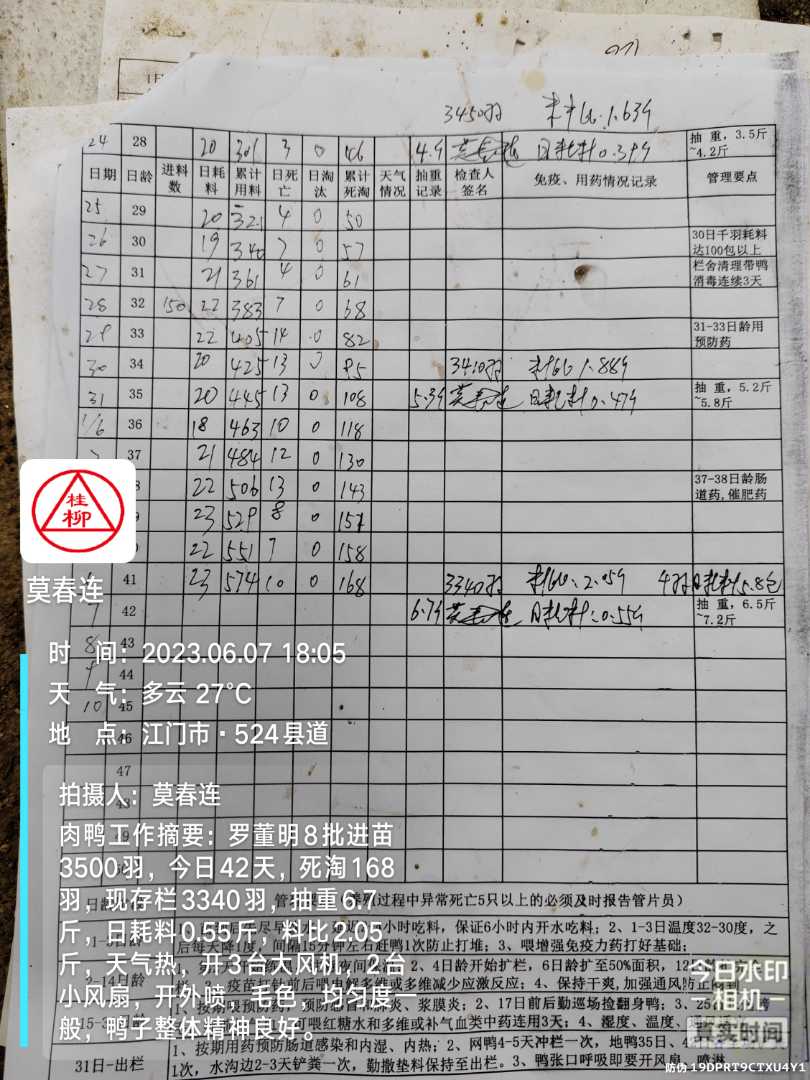 3450羽 料比:1.639
24 28 20 301 3 0 46 4.9 莫春连 日耗料0.399 抽重,3.5斤~4.2斤
日期 日龄 进料数 日耗料 累计用料 日死亡 日淘汰 累计死淘 天气情况 抽重记录 检查人签名 免疫、用药情况记录 管理要点
25 29 20 321 4 0 50
26 30 19 340 7 0 57 30日千羽耗料达100包以上
27 31 21 361 4 0 61 栏舍清理带鸭消毒连续3天
28 32 150 22 383 7 0 68
29 33 22 405 14 0 82 31-33日龄用预防药
30 34 20 425 13 0 95 3410羽 料比 1.889
31 35 20 445 13 0 108 5.39 莫春连 日耗料0.479 抽重,5.2斤~5.8斤
1/6 36 18 463 10 0 118
37 21 484 12 0 130
22 506 13 0 143 37-38日龄肠道药,催肥药
23 529 8 0 151
22 551 7 0 158
41 23 574 10 0 168 3340羽 料比:2.059 日耗料5.8包
7 42 6.79 莫春连 日耗料:0.559 抽重,6.5斤~7.2斤
8 43
9 44
10 45
46
47
桂柳
莫春连
时 间:2023.06.07 18:05
天 气:多云 27℃
地 点:江门市·524县道
拍摄人:莫春连
肉鸭工作摘要:罗董明8批进苗
3500羽,今日42天,死淘168
羽,现存栏3340羽,抽重6.7
斤,日耗料0.55斤,料比2.05
斤,天气热,开3台大风机,2台
小风扇,开外喷,毛色,均匀度一
般,鸭子整体精神良好。
(养殖过程中异常死亡5只以上的必须及时报告管片员)
小时吃料,保证6小时内开水吃料;2、1-3日温度32-30度,之
后每天降1度,间隔15分钟左右赶鸭1次防止打堆;3、喂增强免疫力药打好基础;
2、4日龄开始扩栏,6日龄扩至50%面积,12
疫苗打针前后喂电解多维或多维减少应激反应;4、保持干爽,加强通风防止
浆膜炎;2、17日前后勤巡场捡翻身鸭;3、25
可喂红糖水和多维或补气血类中药连用3天;4、湿度、温度、
31日-出栏 1、按期用药预防肠道感染和内湿、内热;2、网鸭4-5天冲栏一次,地鸭35日、4
1次,水沟边2-3天铲粪一次,勤撒垫料保持至出栏。3、鸭张口呼吸即要开风扇、喷淋
今日水印
相机
真实时间
防伪 19DPRT9CTXU4Y1